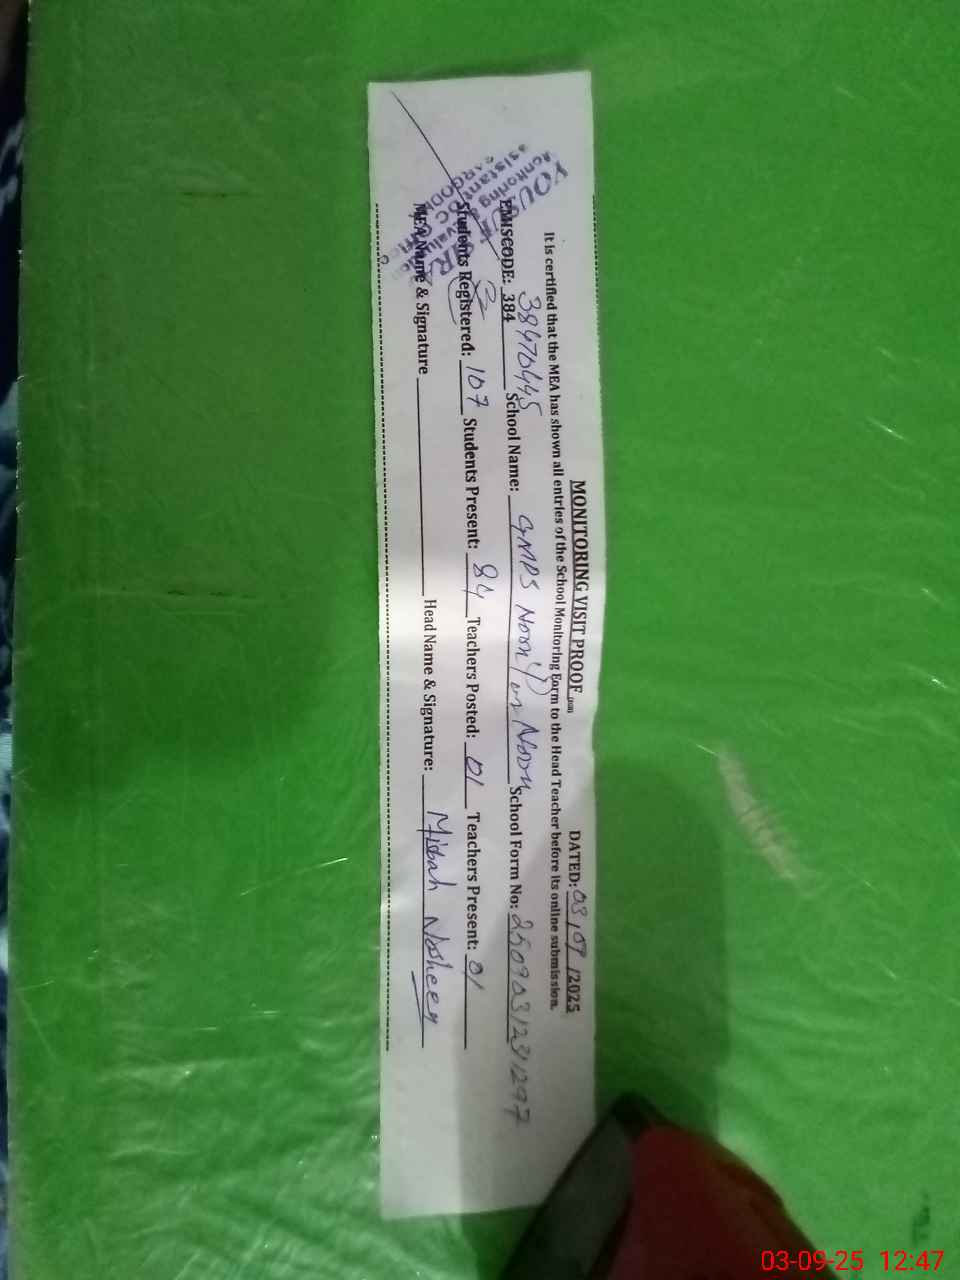 MONITORING VISIT PROOF DATED: 03/09/2025
It is certified that the MEA has shown all entries of the School Monitoring Form to the Head Teacher before its online submission.
EMISCODE: 384 38470445 School Name: GMPS Noon School Form No: 2509031231297
Students Registered: 107 Students Present: 84 Teachers Posted: 01 Teachers Present: 01
MEA Name & Signature Head Name & Signature: Misbah Nosheen
03-09-25 12:47